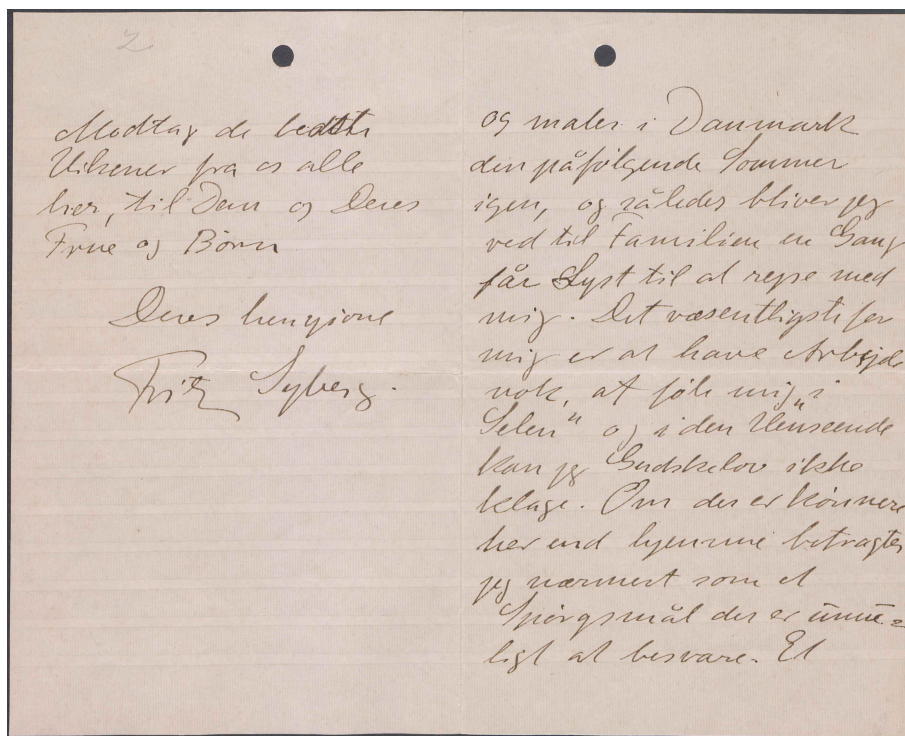 2
Modtag de bedste
Hilsener fra os alle
her, til Dem og Deres
Frue og Børn
Deres hengivne
Fritz Syberg.
og maler i Danmark
den påfølgende Sommer
igen, og således bliver jeg
ved til Familien en Gang
får Lyst til at rejse med
mig. Det væsentligste for
mig er at have Arbejde
nok, at føle mig „i
Selen“ og i den Henseende
kan jeg Gudskelov ikke
klage. Om der er kønnere
her end hjemme betragter
jeg nærmest som et
Spørgsmål der er umu=
ligt at besvare. Et